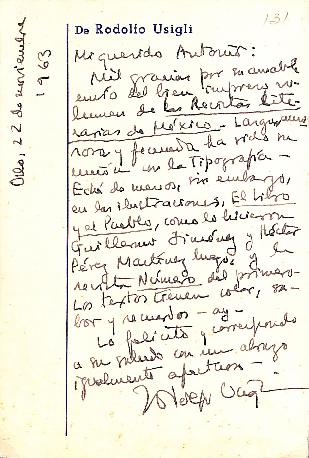 131
De Rodolfo Usigli
Oslo, 22 de noviembre
1963
Mi querido Antonio:
Mil gracias por su amable
envío del bien impreso vo-
lumen de las Revistas Lite-
rarias de México. Larga, nume-
rosa y fecunda ha sido su
misión en la Tipografía -
Eché de menos, sin embargo,
en las ilustraciones, El Libro
y el Pueblo, como lo hicieron
Guillermo Jiménez y Héctor
Pérez Martínez luego, y la
revista Número del primero.
Los textos tienen color, sa-
bor y recuerdos - ay -
Lo felicito y correspondo
a su saludo con un abrazo
igualmente afectuoso -
Rodolfo Usigli